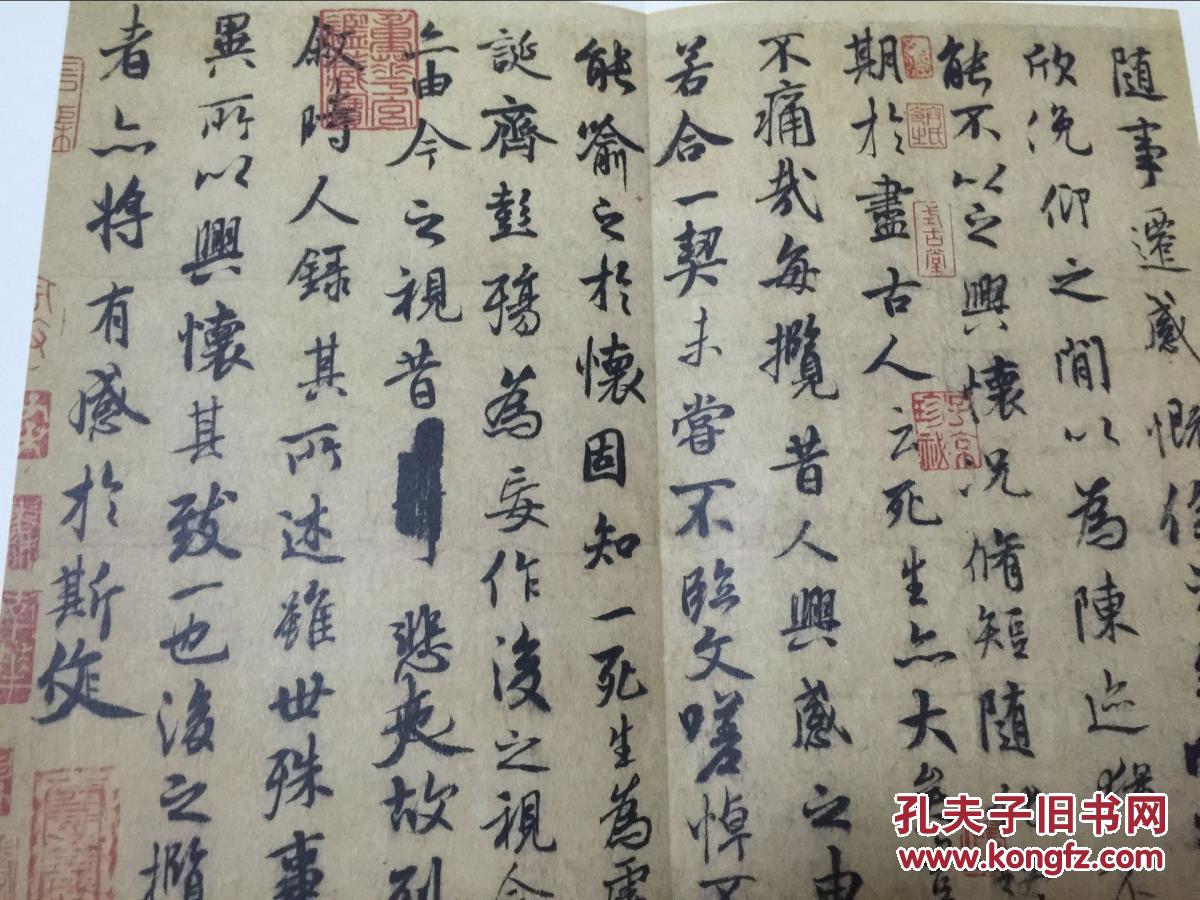 隨事遷感慨係
欣俛仰之閒以為陳迹猶不
能不以之興懷況脩短隨化
期於盡古人云死生亦大矣
不痛哉每攬昔人興感之由
若合一契未嘗不臨文嗟悼不
能喻之於懷固知一死生為虛
誕齊彭殤為妄作後之視今
亦由今之視昔悲夫故列
敘時人錄其所述雖世殊事
異所以興懷其致一也後之攬
者亦將有感於斯文
式古堂
子京珍秘
重華宮鑑藏寶
孔夫子旧书网
www.kongfz.com